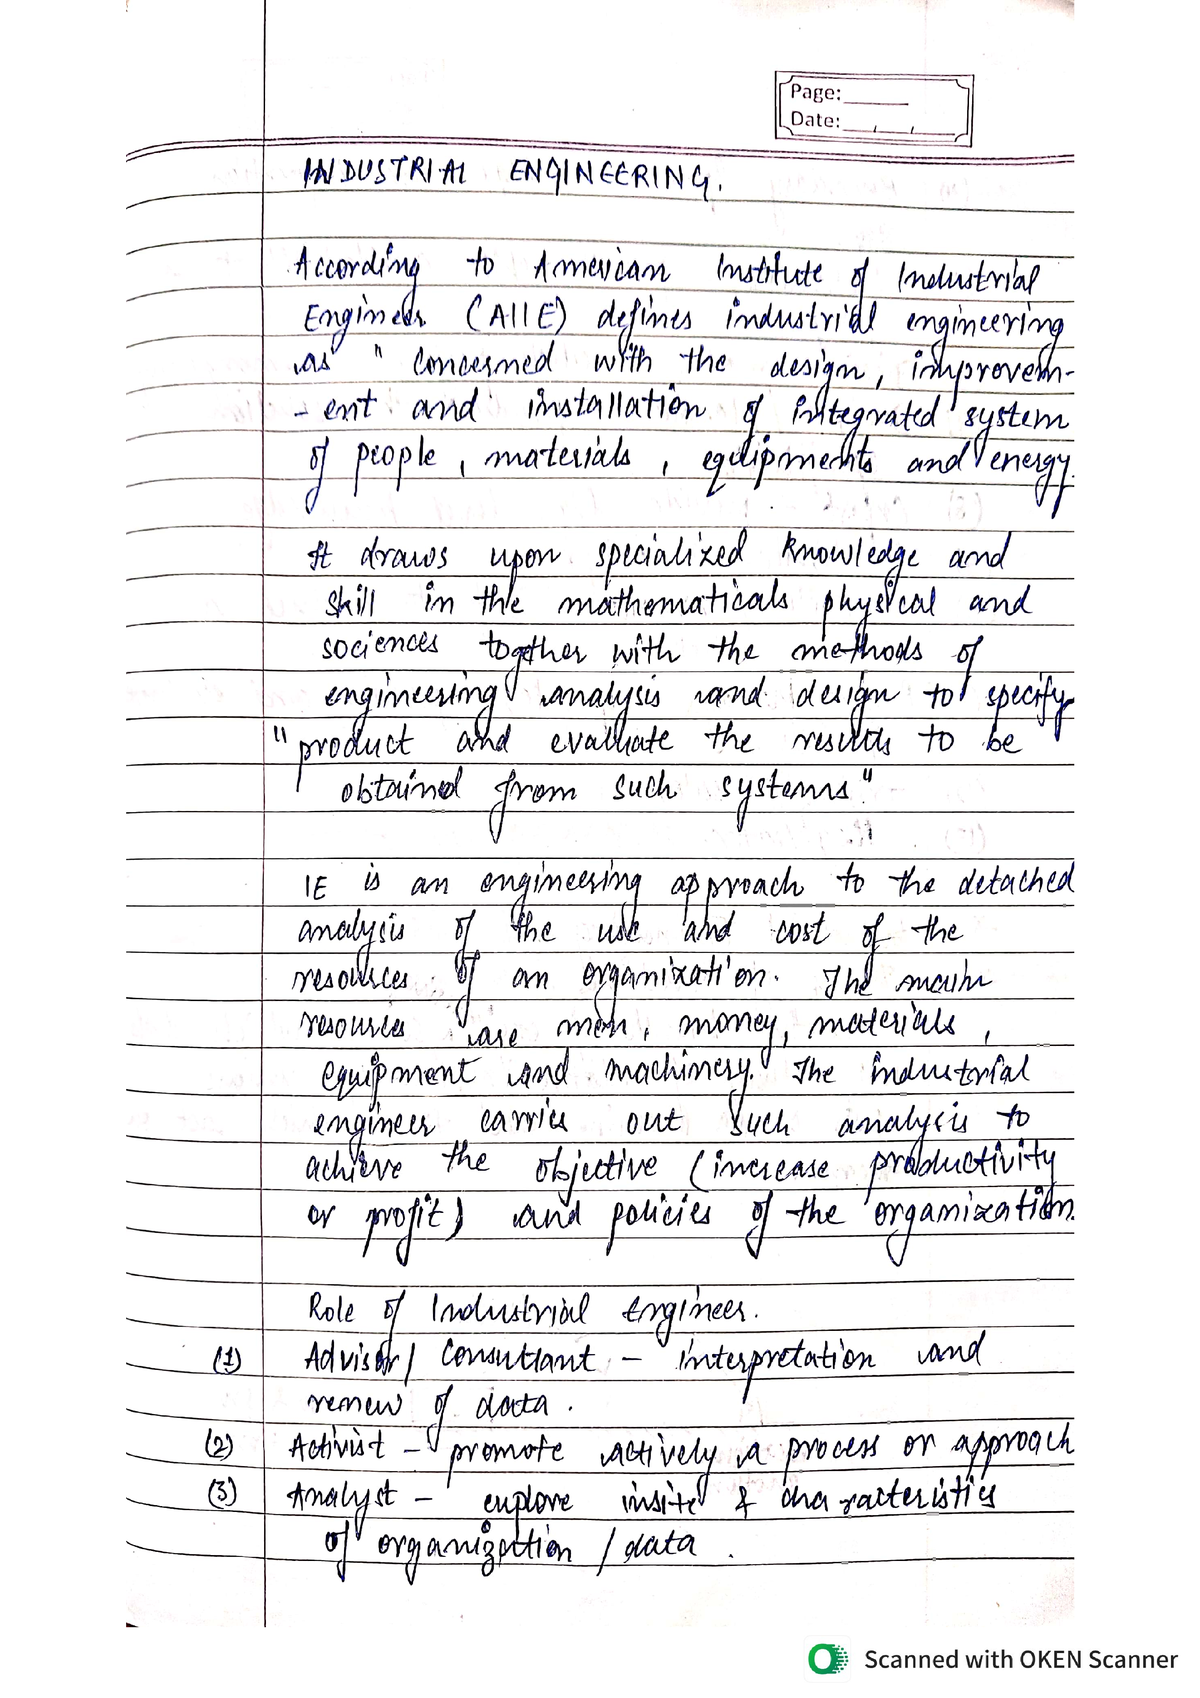 Page:
Date:
INDUSTRIAL ENGINEERING.
According to American Institute of Industrial
Engineers (AIIE) defines industrial engineering
as " concerned with the design, improvem-
- ent and installation of integrated system
of people, materials, equipments and energy.
It draws upon specialized knowledge and
skill in the mathematicals physical and
sociences together with the methods of
engineering analysis and design to specify
" product and evaluate the results to be
obtained from such systems"
IE is an engineering approach to the detached
analysis of the use and cost of the
resources of an organization. The main
resources are men, money, materials,
equipment and machinery. The industrial
engineer carries out such analysis to
achieve the objective (increase productivity
or profit) and policies of the organization.
Role of Industrial Engineer.
(1) Advisor/ Consultant - interpretation and
review of data.
(2) Activist - promote actively a process or approach
(3) Analyst - explore insite & characteristics
of organization / data.
Scanned with OKEN Scanner